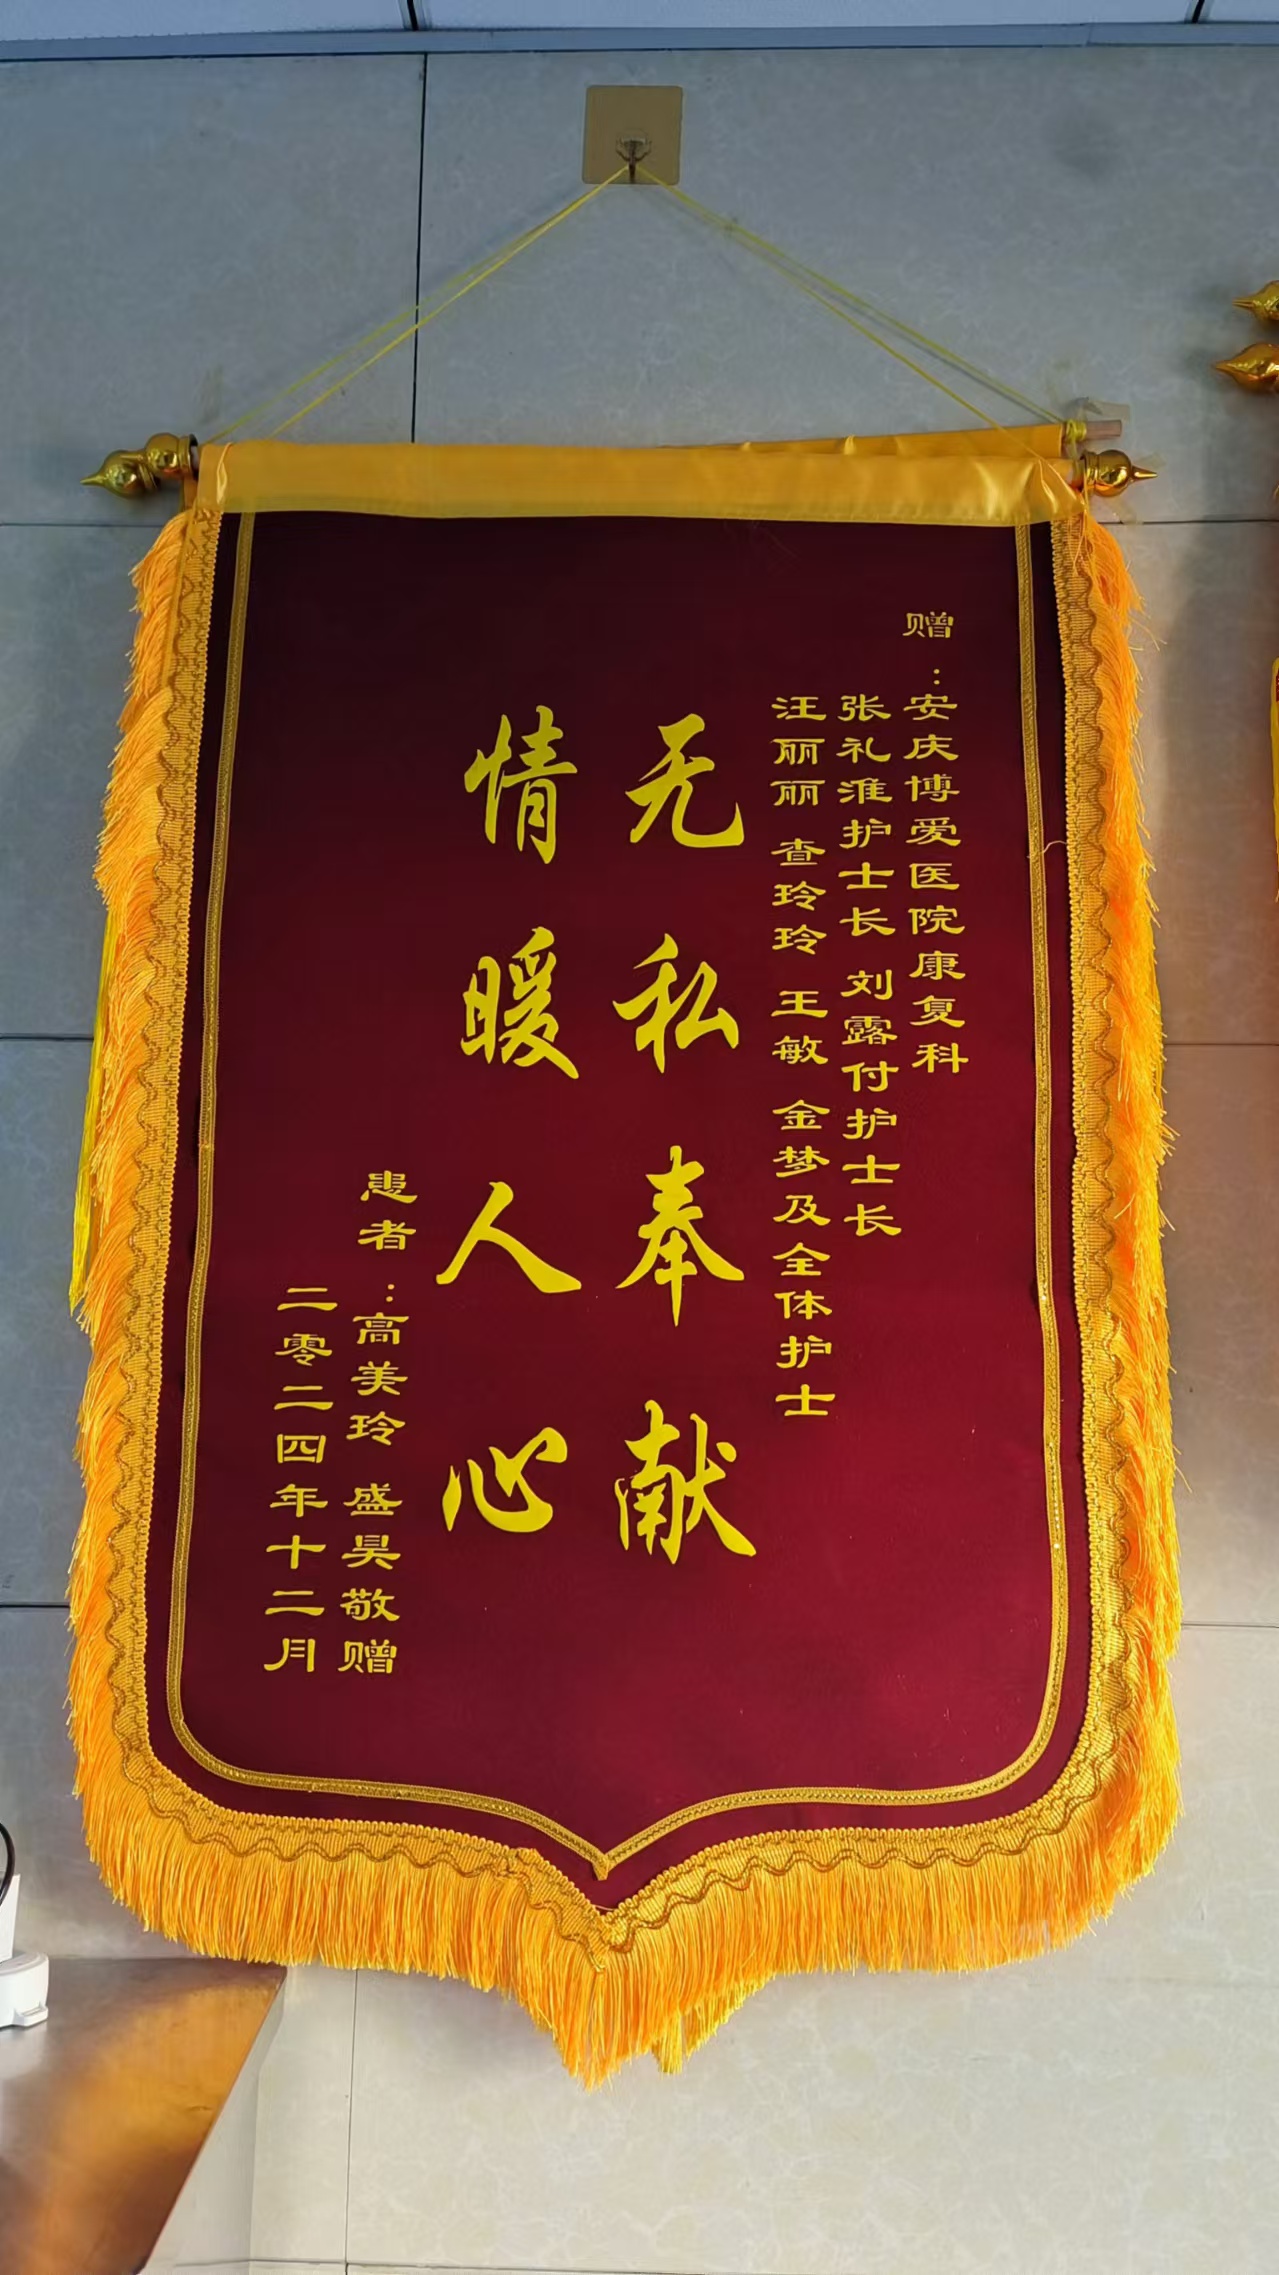 赠：安庆博爱医院康复科
张礼淮护士长 刘露付护士长
汪丽丽 查玲玲 王敏 金梦及全体护士
无私奉献
情暖人心
患者：高美玲 盛昊敬赠
二零二四年十二月